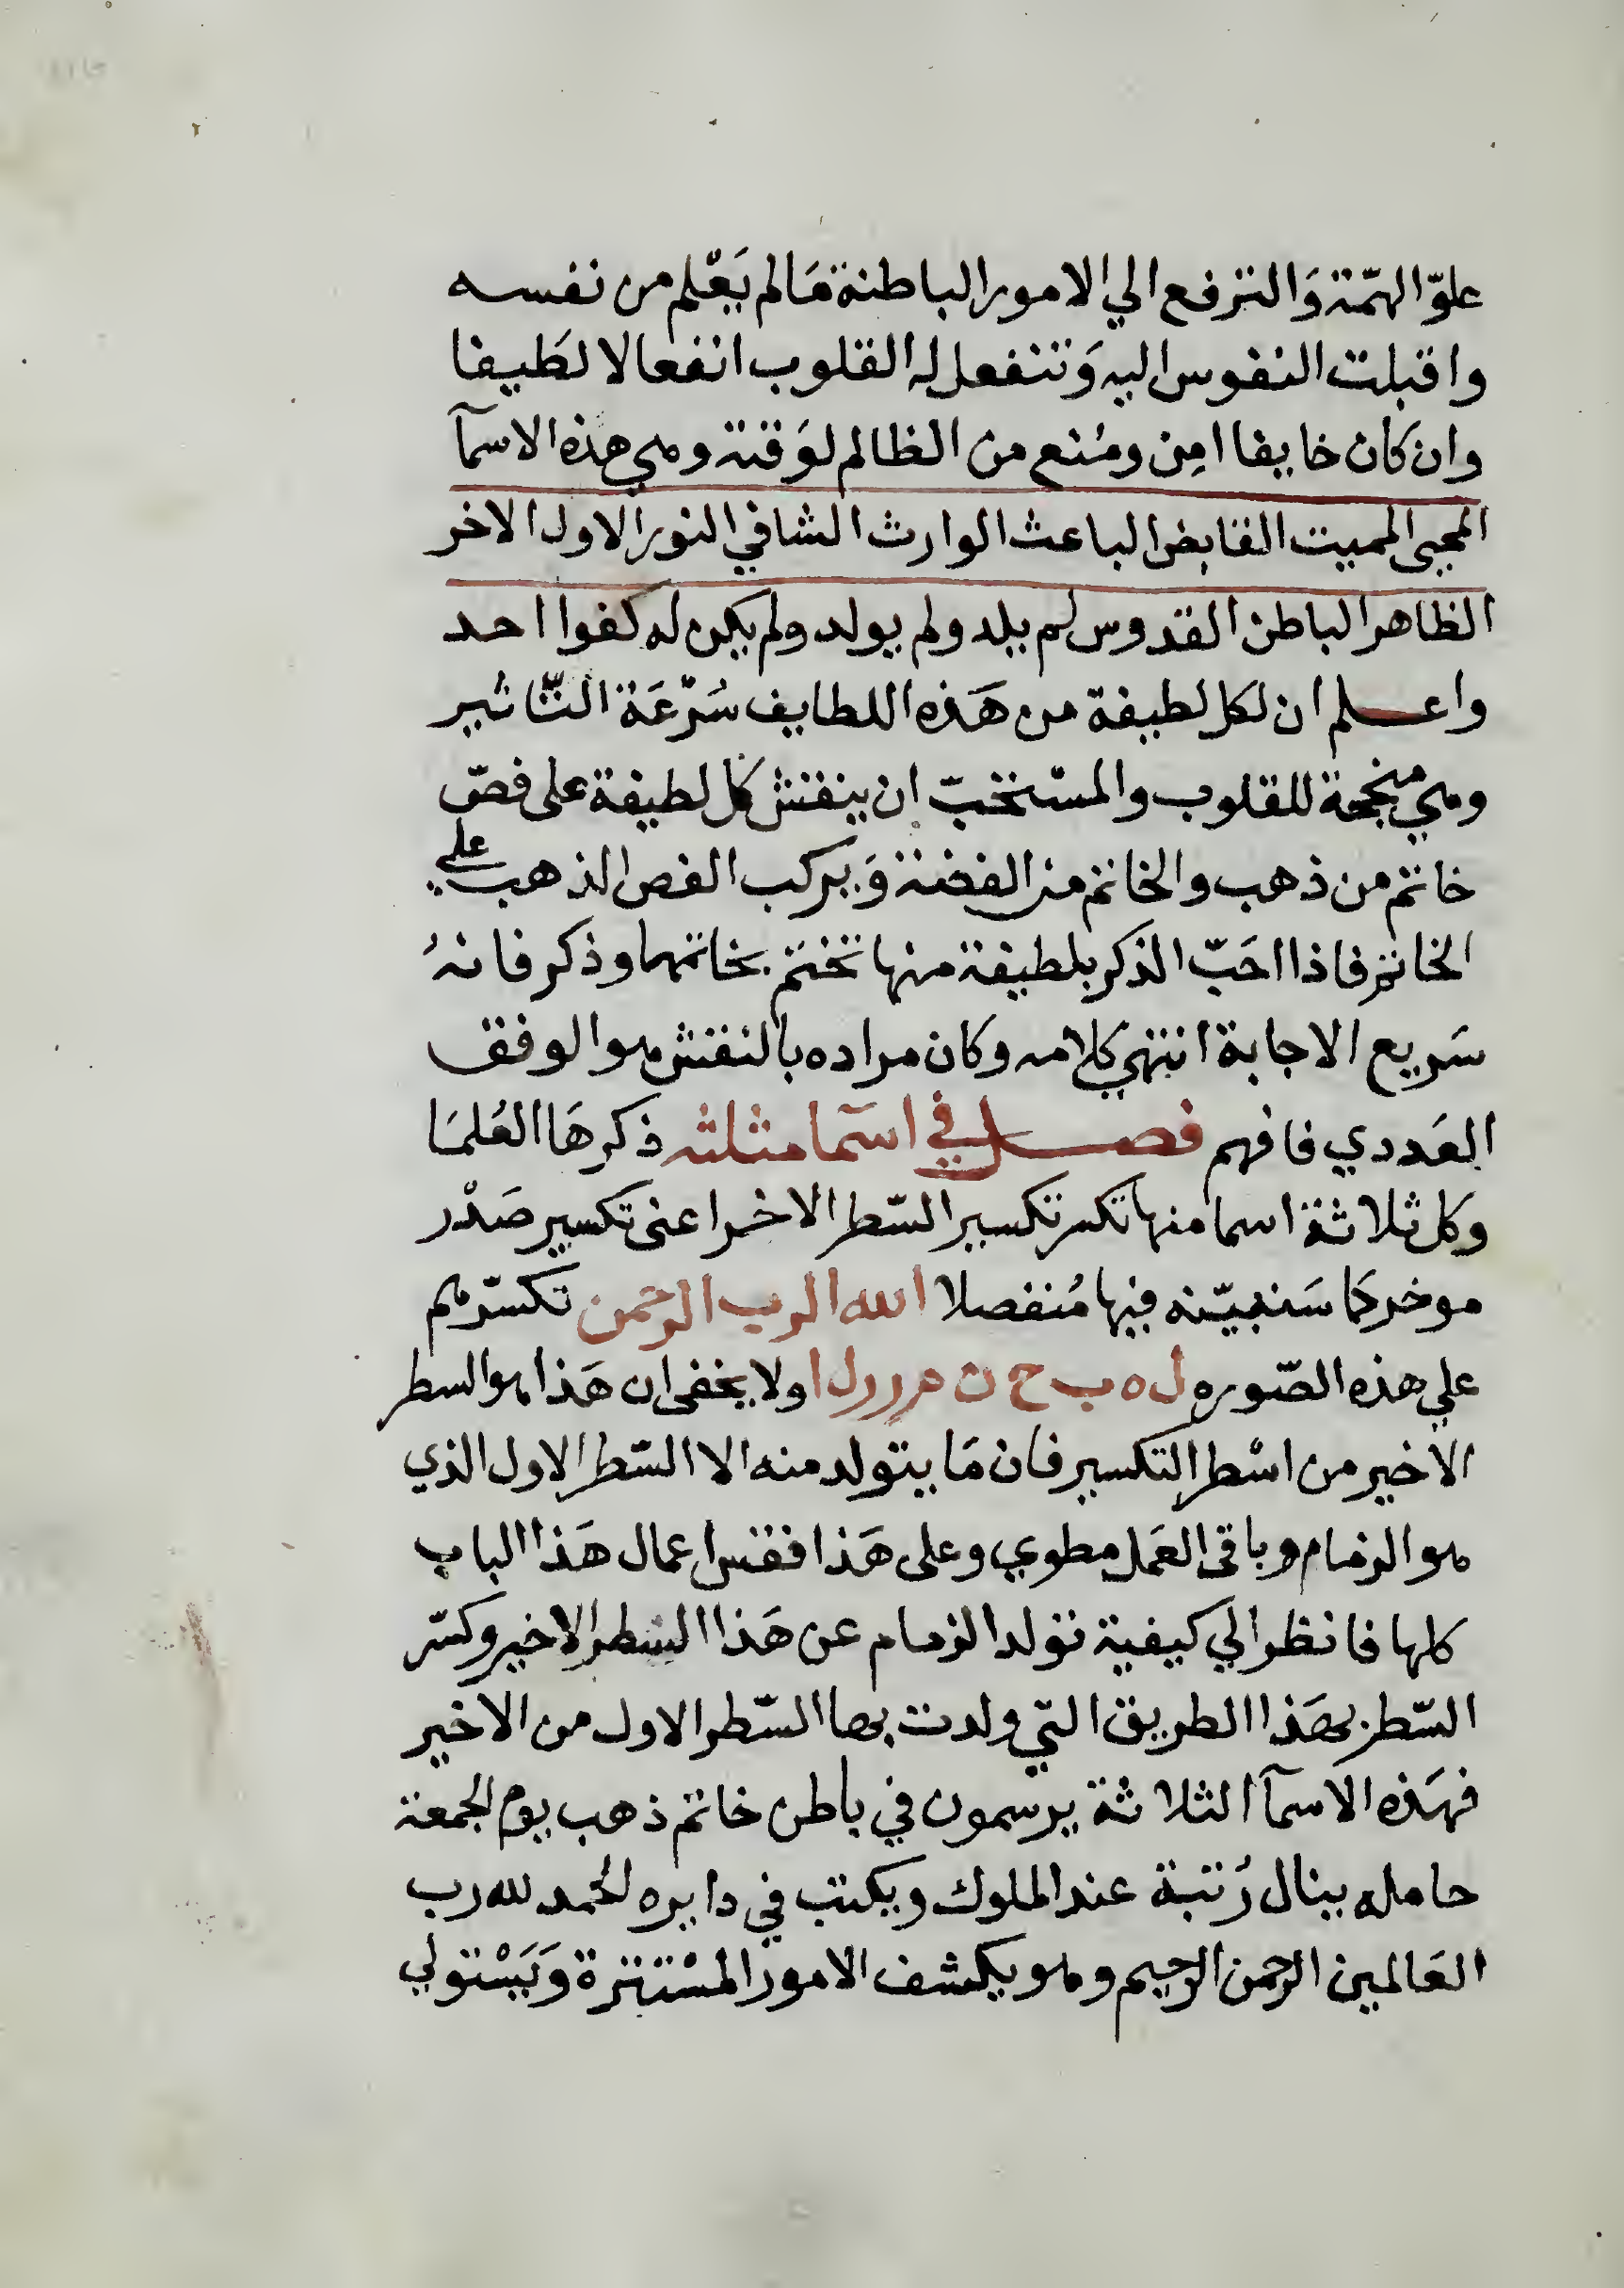 علوّ الهمّة وَالترفع الي الامور الباطنة مَالم يَعْلم من نفسه
واقبلت النفوس اليه وَتنفعل له القلوب انفعالا لطَيفا
وان كان خايفا امِن ومُنع من الظالم لوَقته وهي هذه الاسمآ
المحيي المميت القابض الباعث الوارث الشافي النور الاول الاخر
الظاهر الباطن القدوس لم يلد ولم يولد ولم يكن له كفوا احد
واعلم ان لكل لطيفة من هَذه اللطايف سُرْعَة التّاثير
وهي منجحة للقلوب والمسْتحَبّ ان ينقش كل لطيفة على فصّ
خاتم من ذهب والخاتم من الفضة وَيركب الفص الذهب علي
الخاتم فاذا احَبّ الذكر بلطيفة منها تختم بخاتمها وذكر فانهُ
سَريع الاجابة انتهي كلامه وكان مراده بالنقش هو الوفق
العَددي فافهم فصل في اسمآ مثلثه ذكرهَا العُلمَا
وكل ثلاثة اسما منها تكسر تكسير السّطر الاخر اعنى تكسير صَدْر
موخر كما سَنبيّنه فيها مُنفصلا الله الرب الرحمن تكسّرهم
علي هذه الصّوره ل ه ب ح ن م ر ر ل ا ولا يخفى ان هَذا هو السطر
الاخير من اسْطر التكسير فان مَا يتولد منه الا السّطر الاول الذي
هو الزمام وباقى العَمل مطوي وعلى هَذا فقس اعمال هَذا الباب
كلها فانظر الي كيفية تولد الزمام عن هَذا السطر الاخير وكسّر
السّطر بهَذا الطريق التي ولدت بها السّطر الاول من الاخير
فهَذه الاسمآ الثلاثة يرسمون في باطن خاتم ذهب يوم الجمعة
حامله ينال رُتبة عند الملوك ويكتب في دايره الحمد لله رب
العَالمين الرحمن الرحيم وهو يكشف الامور المسْتترة وَيَسْتولي